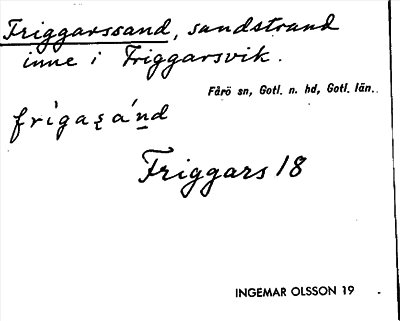 Friggarssand, sandstrand
inne i Friggarsvik.
Fårö sn, Gotl. n. hd, Gotl. län.
frìgaꜱánd
Friggars 18
INGEMAR OLSSON 19